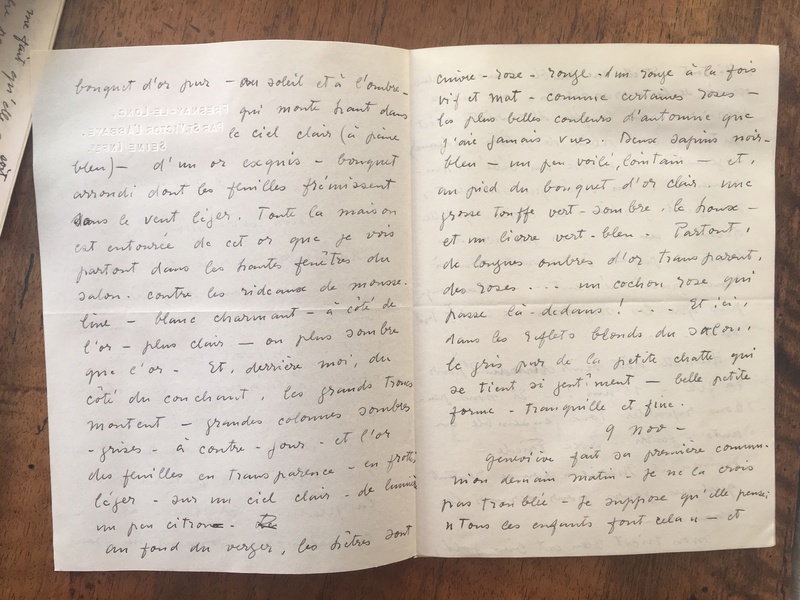 me fait qu'elle
bouquet d'or pur - au soleil et à l'ombre -
qui monte haut dans
le ciel clair (à peine
bleu) - d'un or exquis - bouquet
arrondi dont les feuilles frémissent
dans le vent léger. Toute la maison
est entourée de cet or que je vois
partout dans les hautes fenêtres du
salon. contre les rideaux de mousse-
line - blanc charmant - à côté de
l'or - plus clair - ou plus sombre
que l'or - Et, derrière moi, du
côté du couchant, les grands troncs
montent - grandes colonnes sombres
- grises - à contre-jour - et l'or
des feuilles en transparence - en frottis
léger - sur un ciel clair - de lumière
un peu citron -
au fond du verger, les hêtres sont
cuivre - rose - rouge - d'un rouge à la fois
vif et mat - comme certaines roses -
les plus belles couleurs d'automne que
j'aie jamais vues. Deux sapins noir-
bleu - un peu voilé, lointain - et,
au pied du bouquet d'or clair. une
grosse touffe vert-sombre, le houx -
et un lierre vert-bleu. Partout,
de longues ombres d'or transparent,
des roses ... un cochon rose qui
passe là-dedans ! ... Et ici,
dans les reflets blonds du salon,
le gris pur de la petite chatte qui
se tient si gentîment - belle petite
forme - tranquille et fine.
9 Nov -
Geneviève fait sa première commu-
nion demain matin - Je ne la crois
pas troublée - Je suppose qu'elle pense :
"Tous les enfants font cela" - et